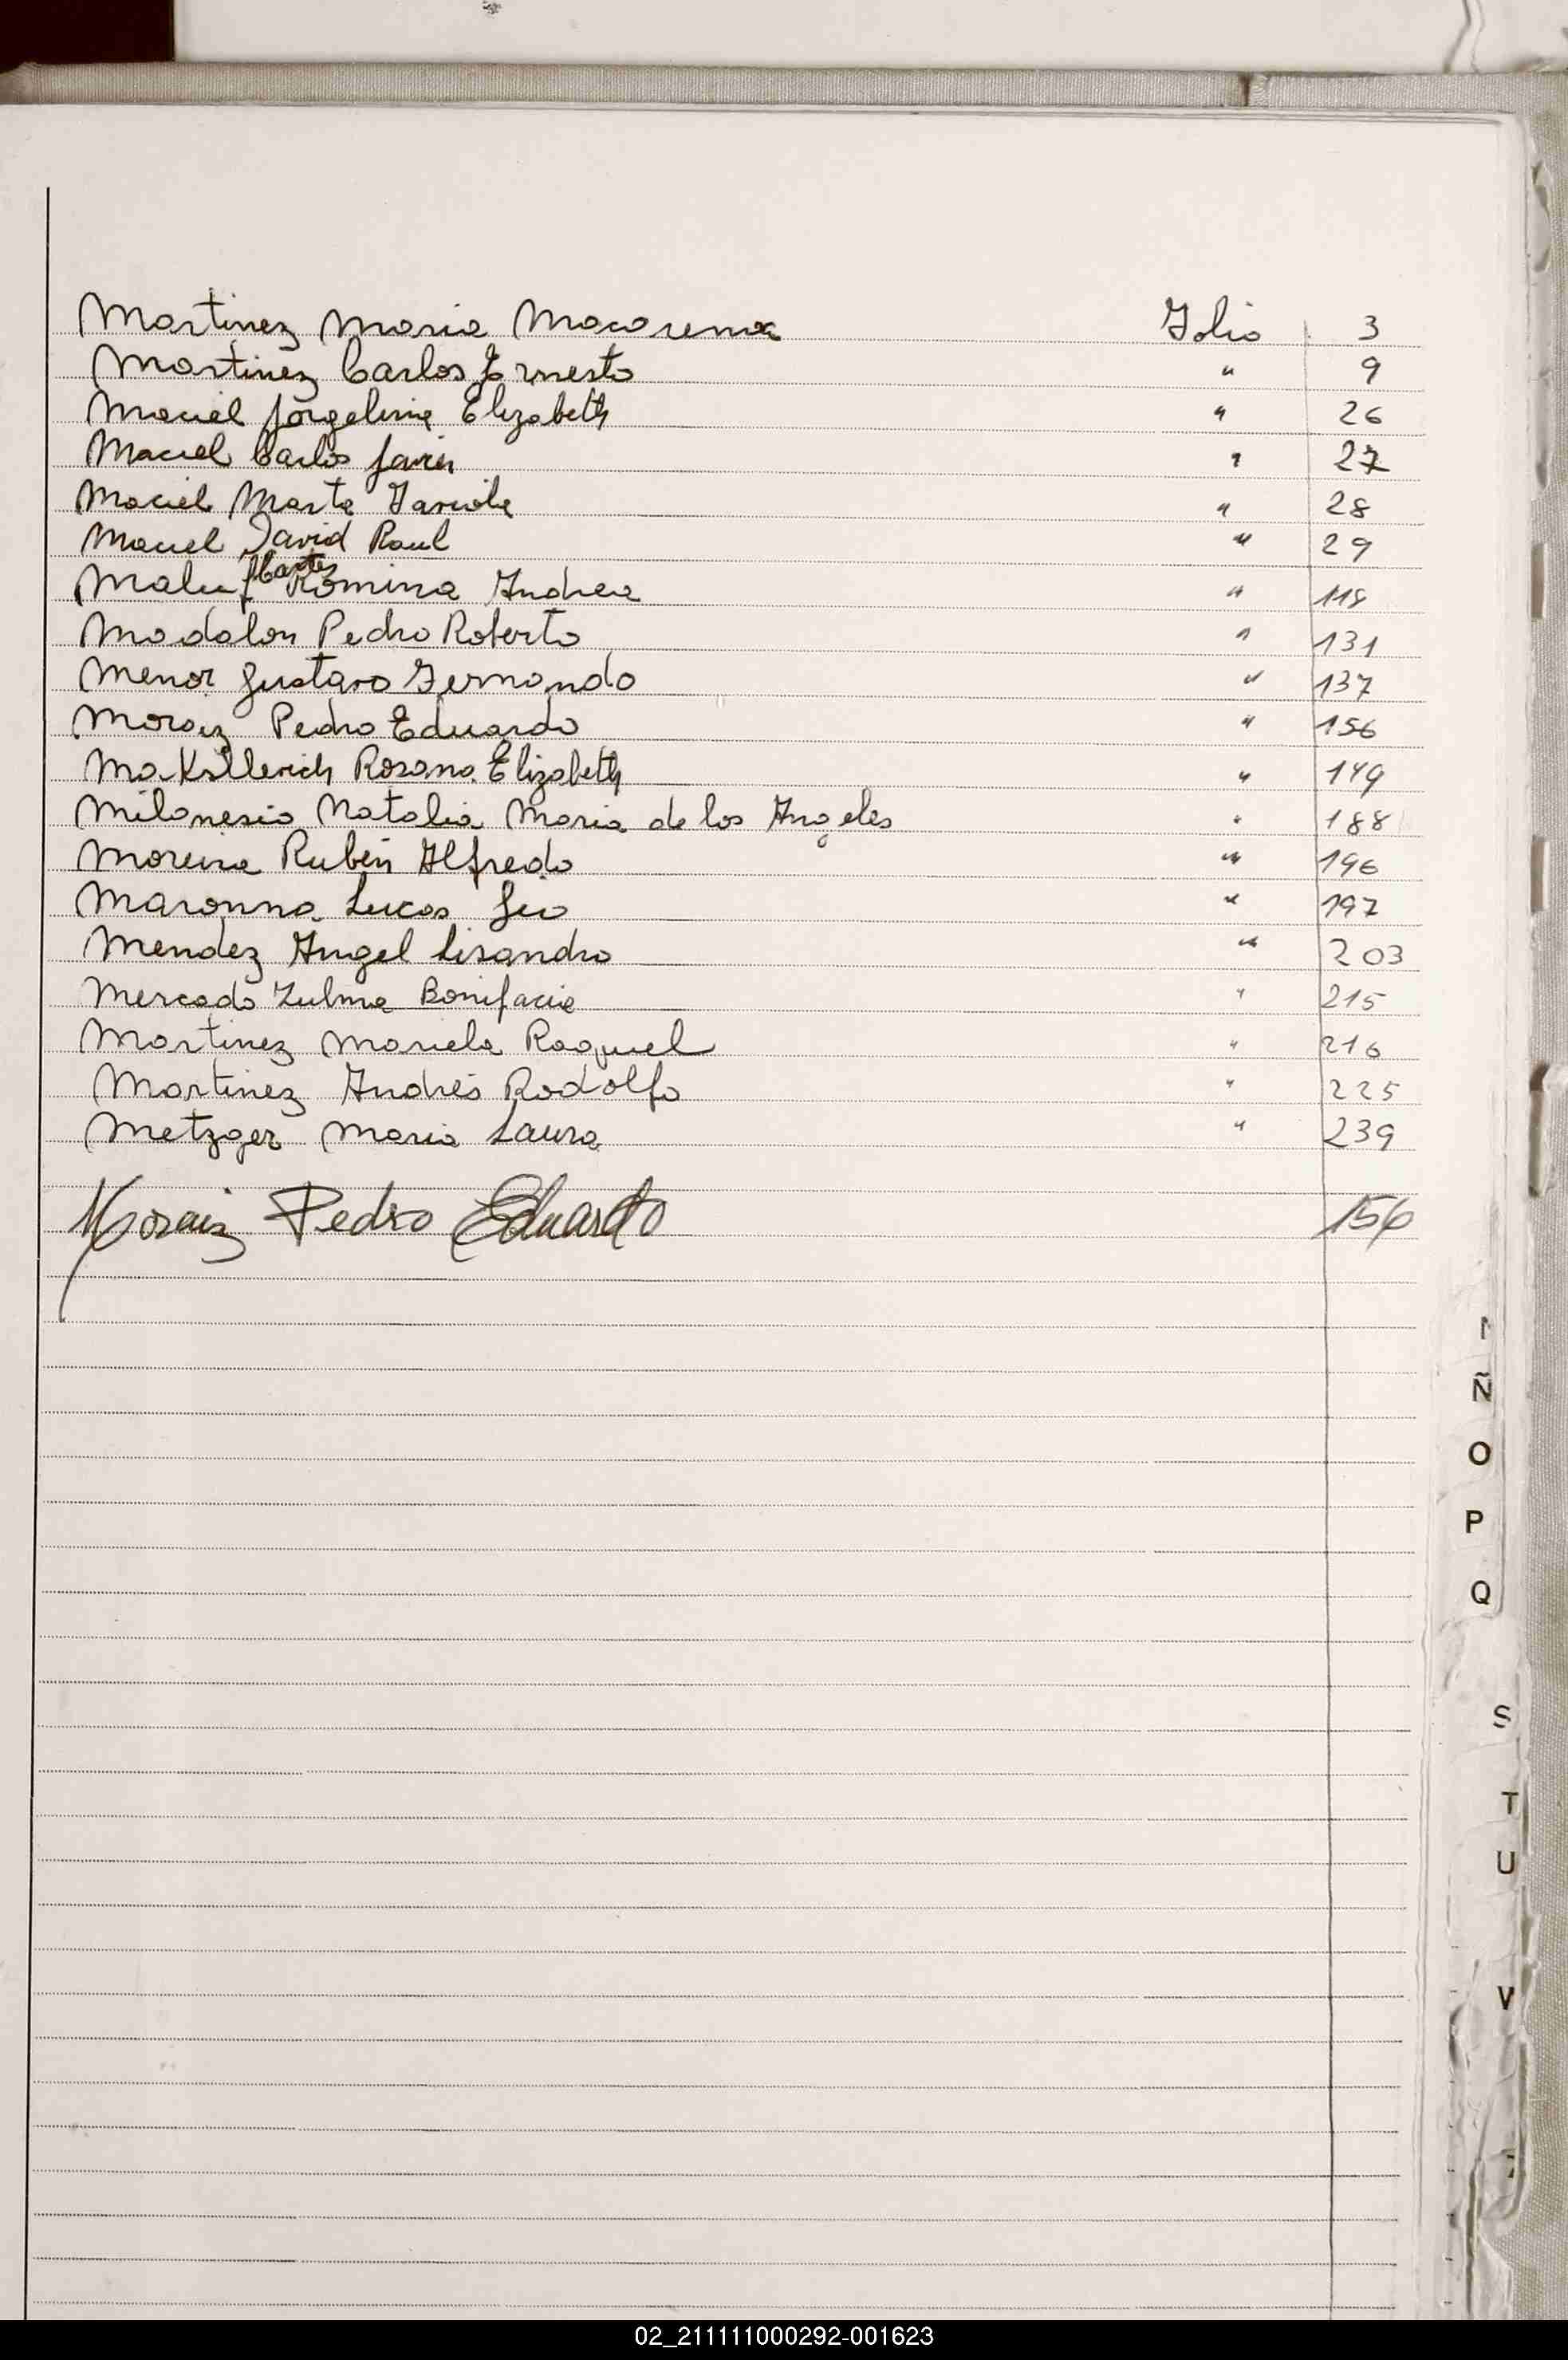 Martinez Maria Macarena Folio 3
Martinez Carlos Ernesto " 9
Maciel Jorgelina Elizabeth " 26
Maciel Carlos Javier " 27
Maciel Marta Fabiola " 28
Maciel David Raul " 29
Cartes
Maluf Romina Andrea " 118
Madalon Pedro Roberto " 131
Menor Gustavo Fernando " 137
Moraiz Pedro Eduardo " 156
Ma Rosana Elizabeth " 149
Milanesio Natalia Maria de los Angeles " 188
Moreira Rubén Alfredo " 196
Maronna Lucas " 197
Mendez Angel Lisandro " 203
Mercado Zulma Bonifacia " 215
Martinez Mariela Raquel " 216
Martinez Andrés Rodolfo " 225
Metzger Maria Laura " 239
Moraiz Pedro Eduardo 156
Ñ
O
P
Q
S
T
U
V
02_211111000292-001623